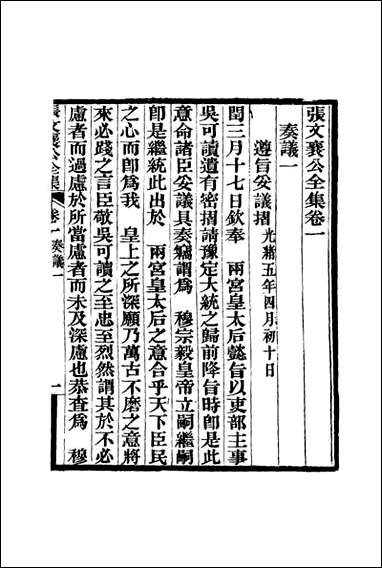 張文襄公全集卷一
奏議一
遵旨妥議摺 光緒五年四月初十日
閏三月十七日欽奉 兩宮皇太后懿旨以吏部主事
吳可讀遺有密摺請豫定大統之歸前降旨時卽是此
意命諸臣妥議具奏竊謂爲 穆宗毅皇帝立嗣繼嗣
卽是繼統此出於 兩宮皇太后之意合乎天下臣民
之心而卽爲我 皇上之所深願乃萬古不磨之意將
來必踐之言臣敬吳可讀之至忠至烈然謂其於不必
慮者而過慮於所當慮者而未及深慮也恭查爲 穆
張文襄公全集 卷一 奏議一 一